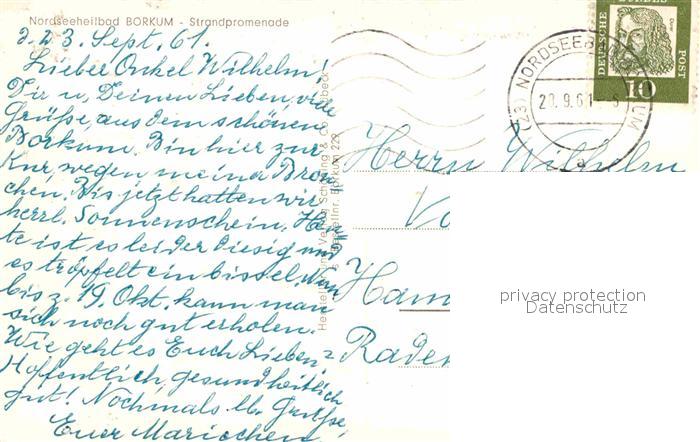 Nordseeheilbad BORKUM - Strandpromenade
z.Z. 23. Sept. 61.
Lieber Onkel Wilhelm!
Dir u, Deinen Lieben, viele
Grüße, aus dem schönen
Borkum. Bin hier zur
Kur, wegen meiner Bron
chen. Bis jetzt hatten wir
herrl. Sonnenschein. Heu
te ist es leider diesig und
es tröpfelt ein bissel. Nun
bis z. 19. Okt. kann man
sich noch gut erholen.
Wie geht es Euch Lieben?
Hoffentlich, gesundheitlich
gut! Nochmals lb. Grüße,
Eure Mariechen
Herstellung und Verlag Schöning & Co
Bestellnr. Borkum 229
DEUTSCHE BUNDESPOST
10
(23) NORDSEEBAD BORKUM
20.9.61
a
Herrn Wilhelm
Vo
Ham
Rade
privacy protection
Datenschutz